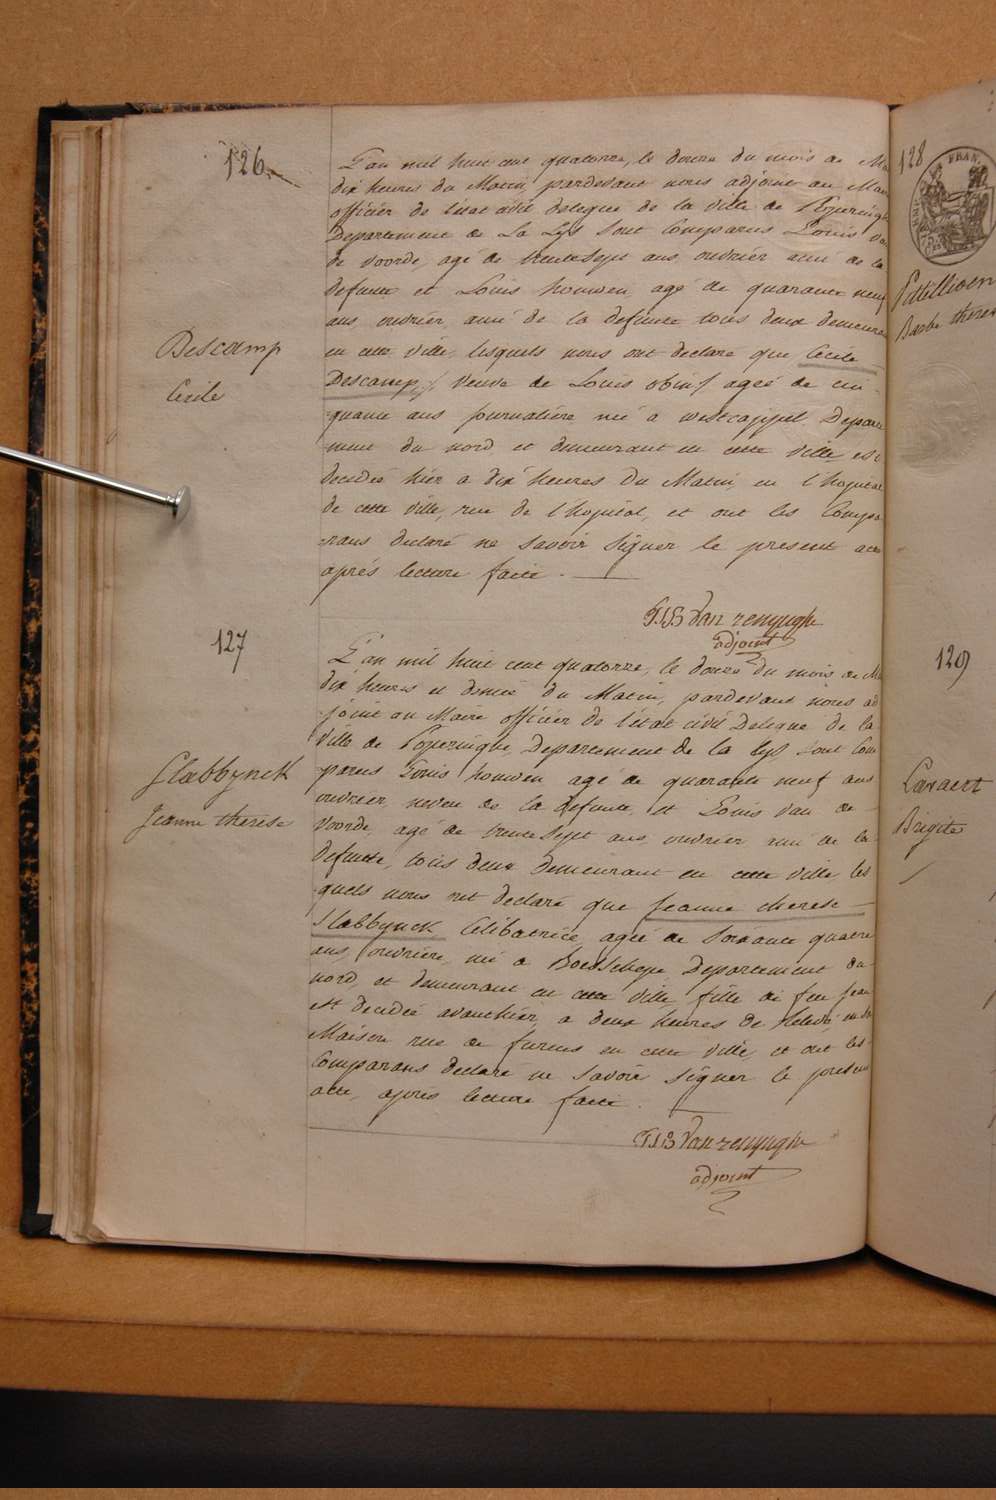 126
L'an mil huit cent quatorze, le douze du mois de Ma
dix heures du Matin, pardevant nous adjoint au Mair
officier de l'état civil delegué de la ville de Poperingh
Departement de La Lys sont Comparus Louis Va
de voorde, agé de trente sept ans, ouvrier ami de la
defunte et Louis houwen, agé de quarante neuf
ans, ouvrier, ami de la defunte tous deux demeura
en cette ville, lesquels nous ont declaré que Cécile
Descamp, veuve de Louis agée de cin-
quante ans journaliere né a westcappel Departe
ment du nord et demeurant en cette ville est
decedée hier a dix heures du Matin, en l'hopital
de cette ville, rue de l'hopital, et ont les Compa
rans declaré ne savoir signer le present acte
aprés lecture faite.
Descamp
Cecile
adjoint
127
L'an mil huit cent quatorze, le douze du mois de Ma
dix heures et demie du Matin, pardevant nous ad
joint au Maire officier de l'état civil Delegué de la
Ville de Poperingue, Departement de la Lys sont Com
parus Louis houwen agé de quarante neuf ans
ouvrier, neveu de la defunte, et Louis van de
voorde, agé de trente sept ans, ouvrier ami de la
defunte, tous deux demeurant en cette ville, les
quels nous ont declaré que Jeanne therese
Slabbynck Celibatrice, agée de soixante quatre
ans, ouvriere, né a Departement du
nord, et demeurant en cette ville, fille de feu Jean
et decedée avanthier, a deux heures de en sa
Maison rue de furnes en cette ville, et ont les
Comparans declaré ne savoir signer le present
acte, aprés lecture faite.
Slabbynck
Jeanne therese
adjoint
128
Barbe theres
129
Brigite